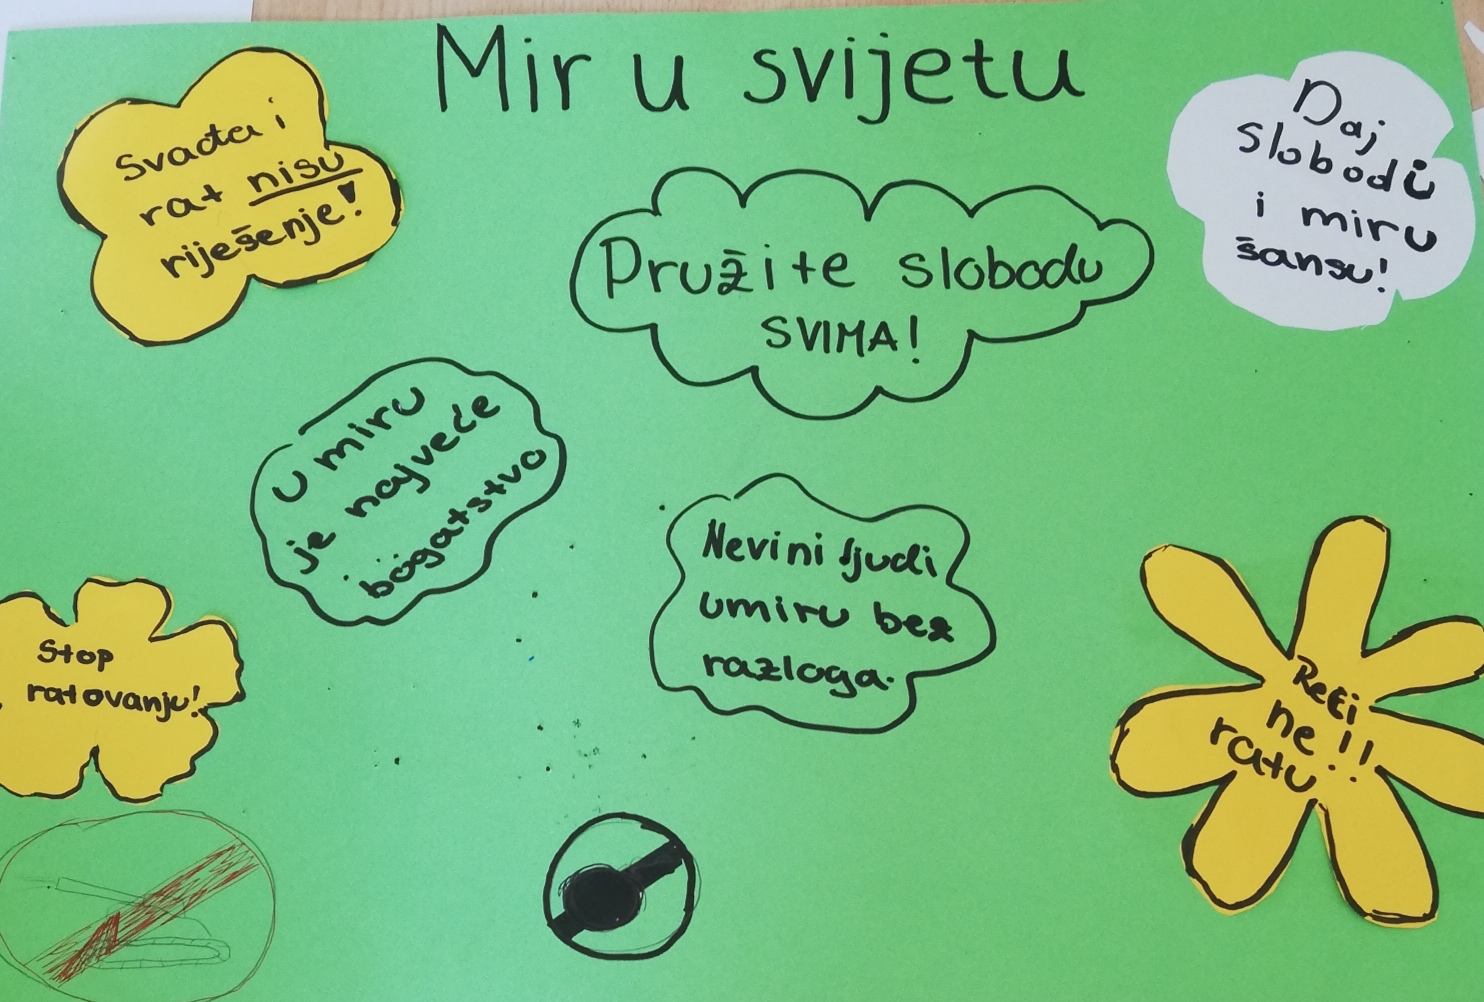 Mir u svijetu
Svađa i
rat nisu
riješenje!
Pružite slobodu
SVIMA!
Daj
slobodi
i miru
šansu!
U miru
je najveće
bogatstvo
Nevini ljudi
umiru bez
razloga.
Stop
ratovanju!
Reči
ne!!
ratu